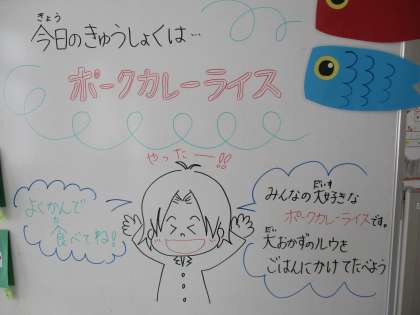 きょう
今日のきゅうしょくは…
ポークカレーライス
やったー!!
よくかんで
食べてね!
みんなの大好きな
だいす
ポークカレーライスです。
だい
大おかずのルウを
ごはんにかけてたべよう